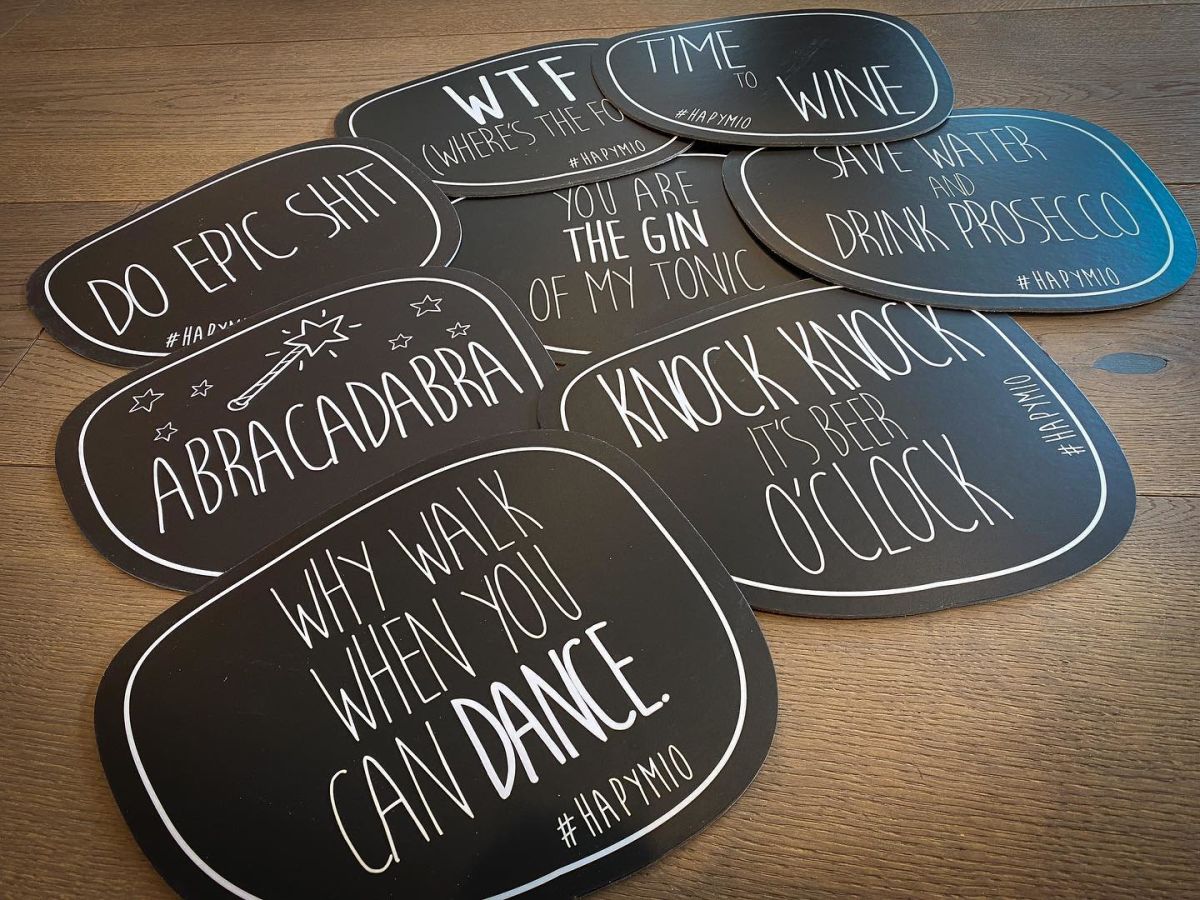 TIME
TO
WINE
#HAPYMIO
WTF
(WHERE'S THE
#HAPYMIO
SAVE WATER
AND
DRINK PROSECCO
#HAPYMIO
DO EPIC SHIT
YOU ARE
THE GIN
OF MY TONIC
ABRACADABRA
KNOCK KNOCK
IT'S BEER
O'CLOCK
#HAPYMIO
WHY WALK
WHEN YOU
CAN DANCE.
#HAPYMIO